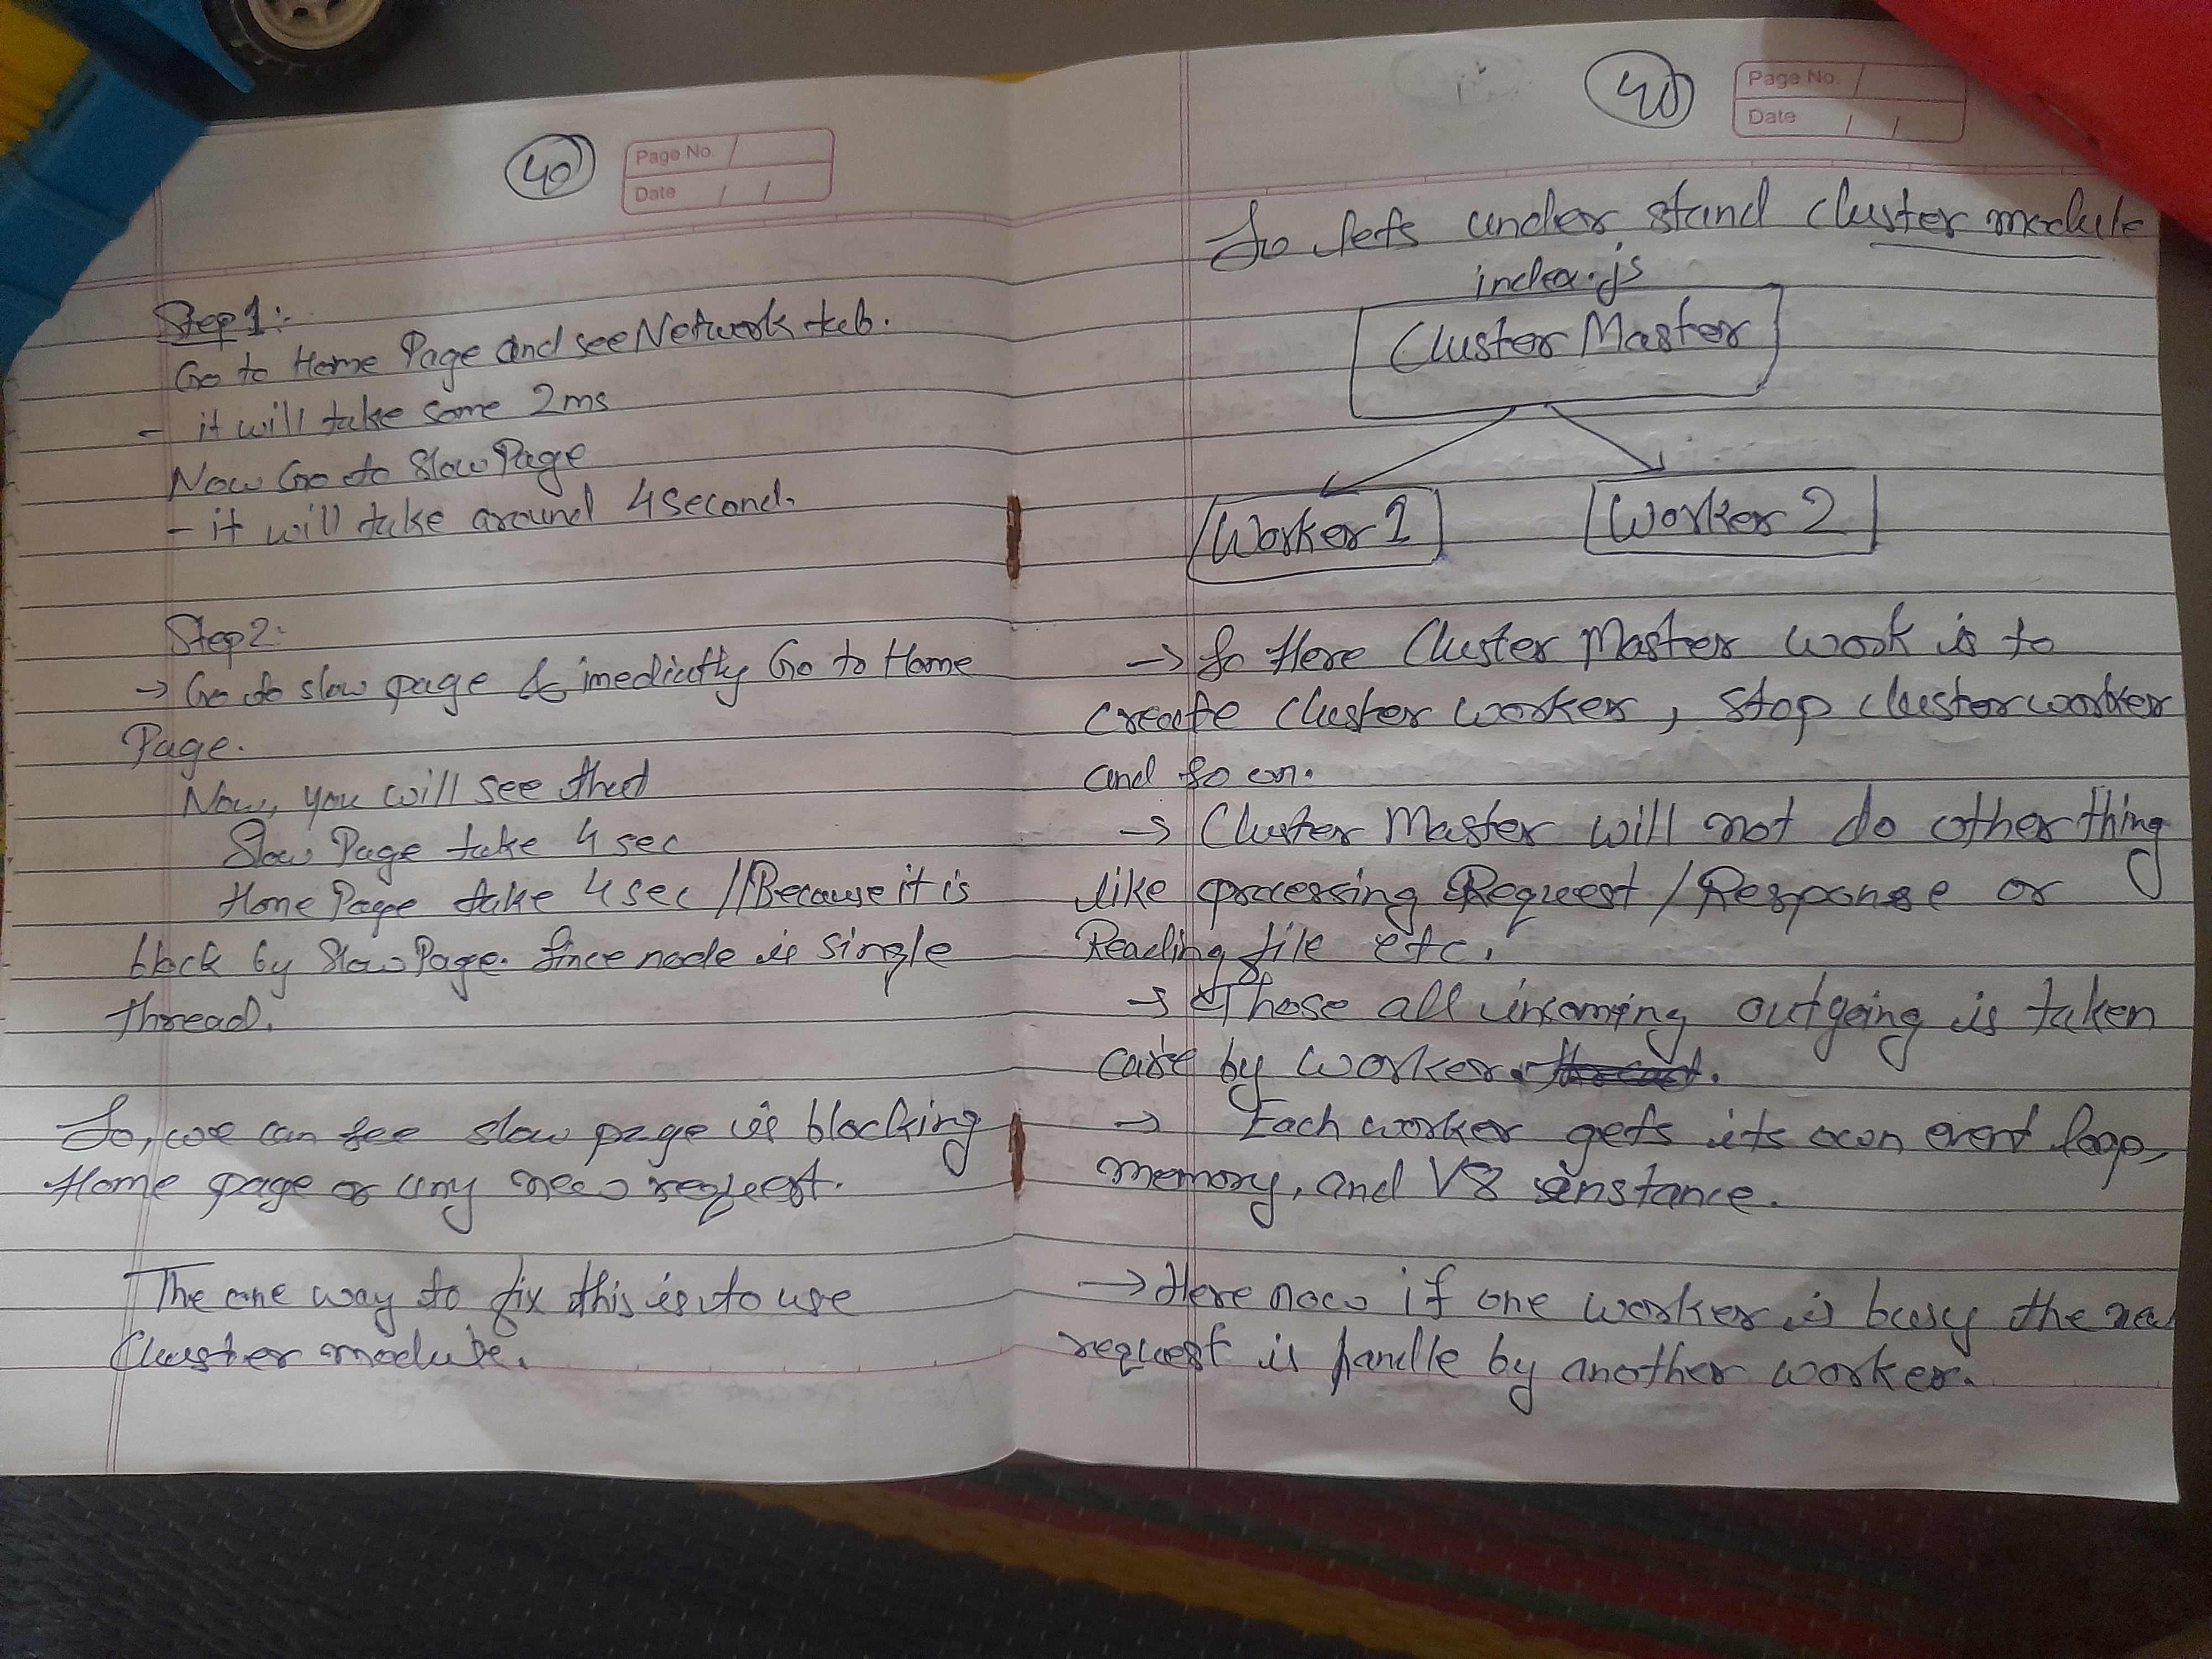 40
Page No.
Date
Step 1:
Go to Home Page and see Network tab.
- it will take some 2ms
Now Go to Slow Page
- it will take around 4 second.
Step 2:
→ Go to slow page & imedictly Go to Home
Page.
Now, you will see that
Slow Page take 4 sec
Home Page take 4 sec //Because it is
block by Slow Page. Since node is single
thread.
So, we can see slow page is blocking
Home page or any new request.
The one way to fix this is to use
Cluster module.
Page No.
Date
So lets under stand cluster module
index.js
Cluster Master
Worker 1
Worker 2
→ So Here Cluster Master work is to
create cluster worker, stop cluster worker
and so on.
→ Cluster Master will not do other thing
like processing Request / Response or
Reading file etc.
→ Those all incoming outgoing is taken
care by worker.
→ Each worker gets its own event loop,
memory, and V8 instance.
→ Here now if one worker is busy the new
request is handle by another worker.